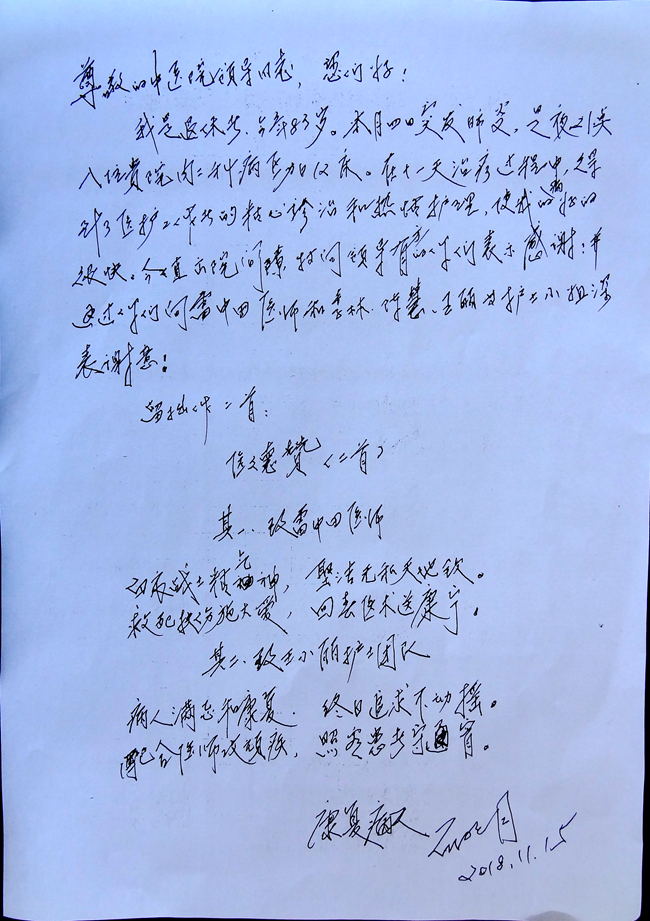 尊敬的中医院领导同志，您们好！
我是退休者，今年83岁。本月四日突发肺炎，是夜21点
入住贵院内二科病区加12床。在十一天治疗过程中，得
到了医护工作者的精心诊治和热情护理，使我的病好的
很快。今天直出院前，特向领导们表示感谢！并
通过你们向雷中田医师和李林、陈慧、王丽为护士小组深
表谢意！
留拙作二首：
医德赞（二首）
其一、致雷中田医师
白衣战士精气神，圣洁无私天地钦。
救死扶伤施大爱，回春医术送康宁。
其二、致王小丽护士团队
病人满意和康复，终日追求不动摇。
配合医师攻顽疾，照看患者守通宵。
康复病人
2018.11.15